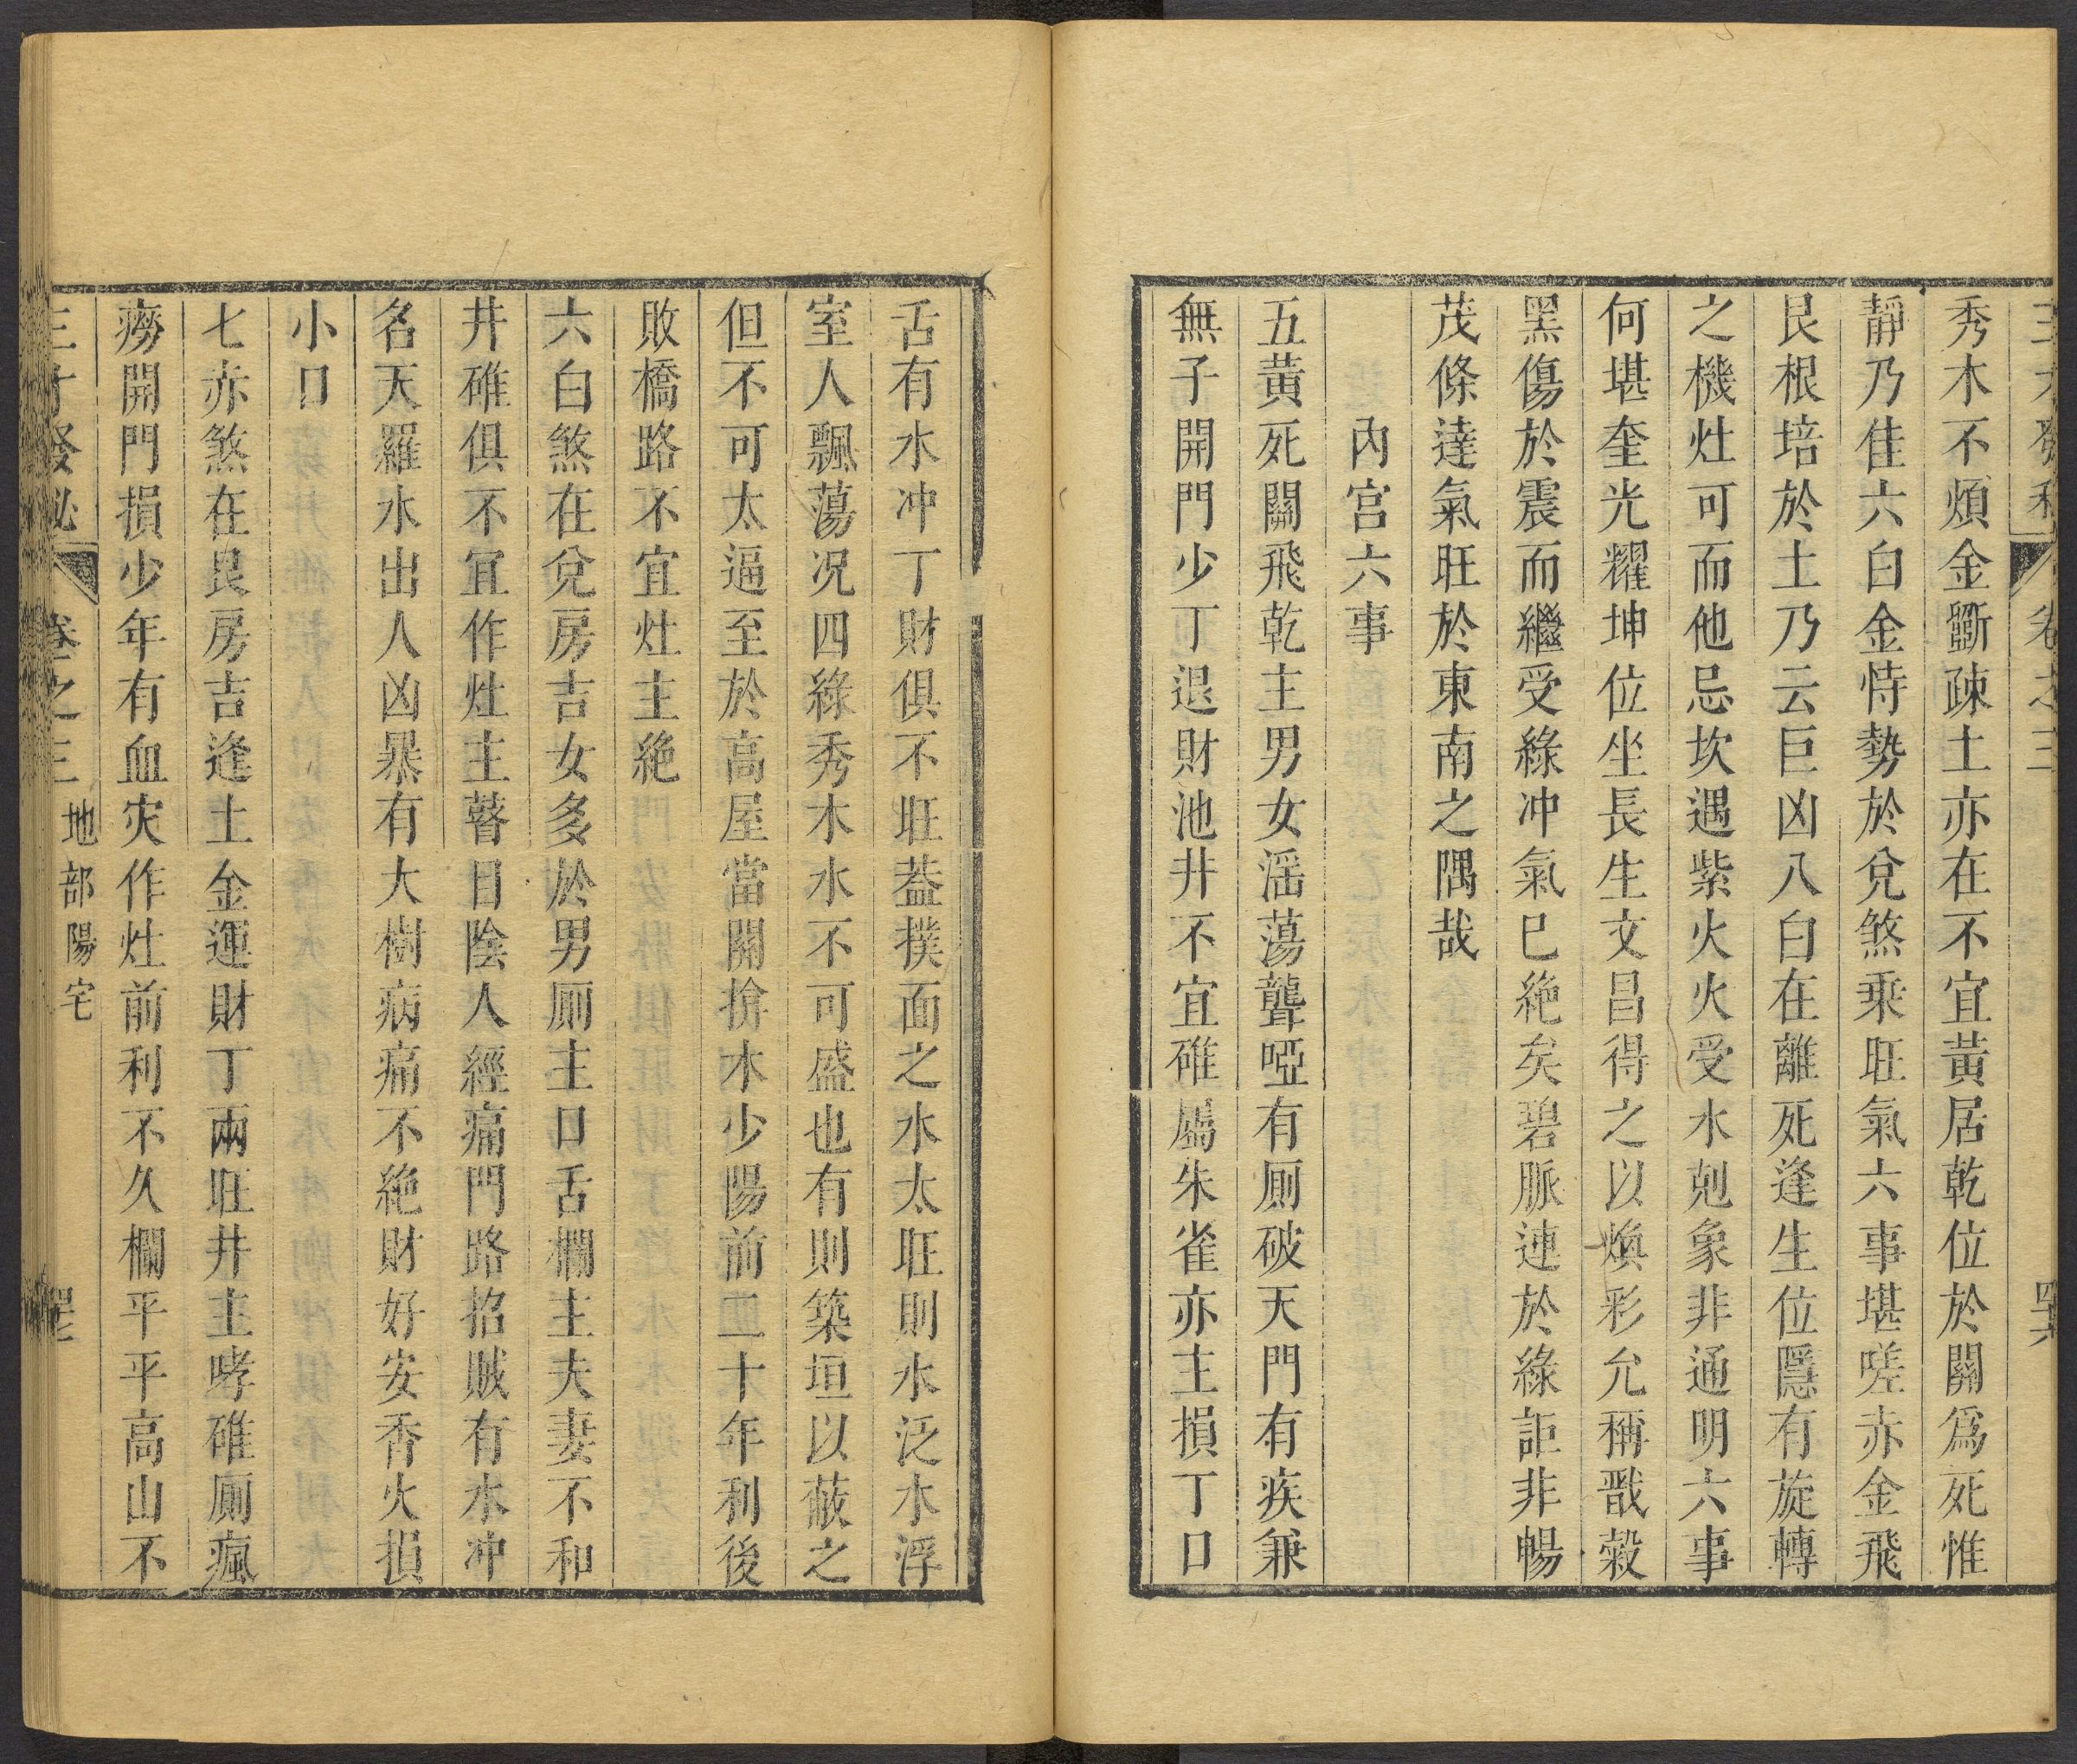 卷之三
秀木不煩金斵疎土亦在不宜黃居乾位於關爲死惟
靜乃佳六白金恃勢於兌煞乘旺氣六事堪嗟赤金飛
艮根培於土乃云巨凶八白在離死逢生位隱有旋轉
之機灶可而他忌坎遇紫火火受水剋象非通明六事
何堪奎光耀坤位坐長生文昌得之以煥彩允稱戩穀
黑傷於震而繼受綠冲氣巳絶矣碧脈連於綠詎非暢
茂條達氣旺於東南之隅哉
內宫六事
五黃死關飛乾主男女滛蕩聾啞有厠破天門有疾兼
無子開門少丁退財池井不宜碓屬朱雀亦主損丁口
舌有水冲丁財俱不旺葢撲面之水太旺則水泛水浮
室人飄蕩况四綠秀木水不可盛也有則築垣以蔽之
但不可太逼至於高屋當關揜木少陽前二十年利後
敗橋路不宜灶主絶
六白煞在兌房吉女多於男厠主口舌欄主夫妻不和
井碓俱不宜作灶主瞽目陰人經痛門路招賊有水冲
名天羅水出人凶暴有大樹病痛不絶財好安香火損
小口
七赤煞在艮房吉逢土金運財丁兩旺井主哮碓厠瘋
癆開門損少年有血灾作灶前利不久欄平平高山不
三才發秘 卷之三 地部陽宅